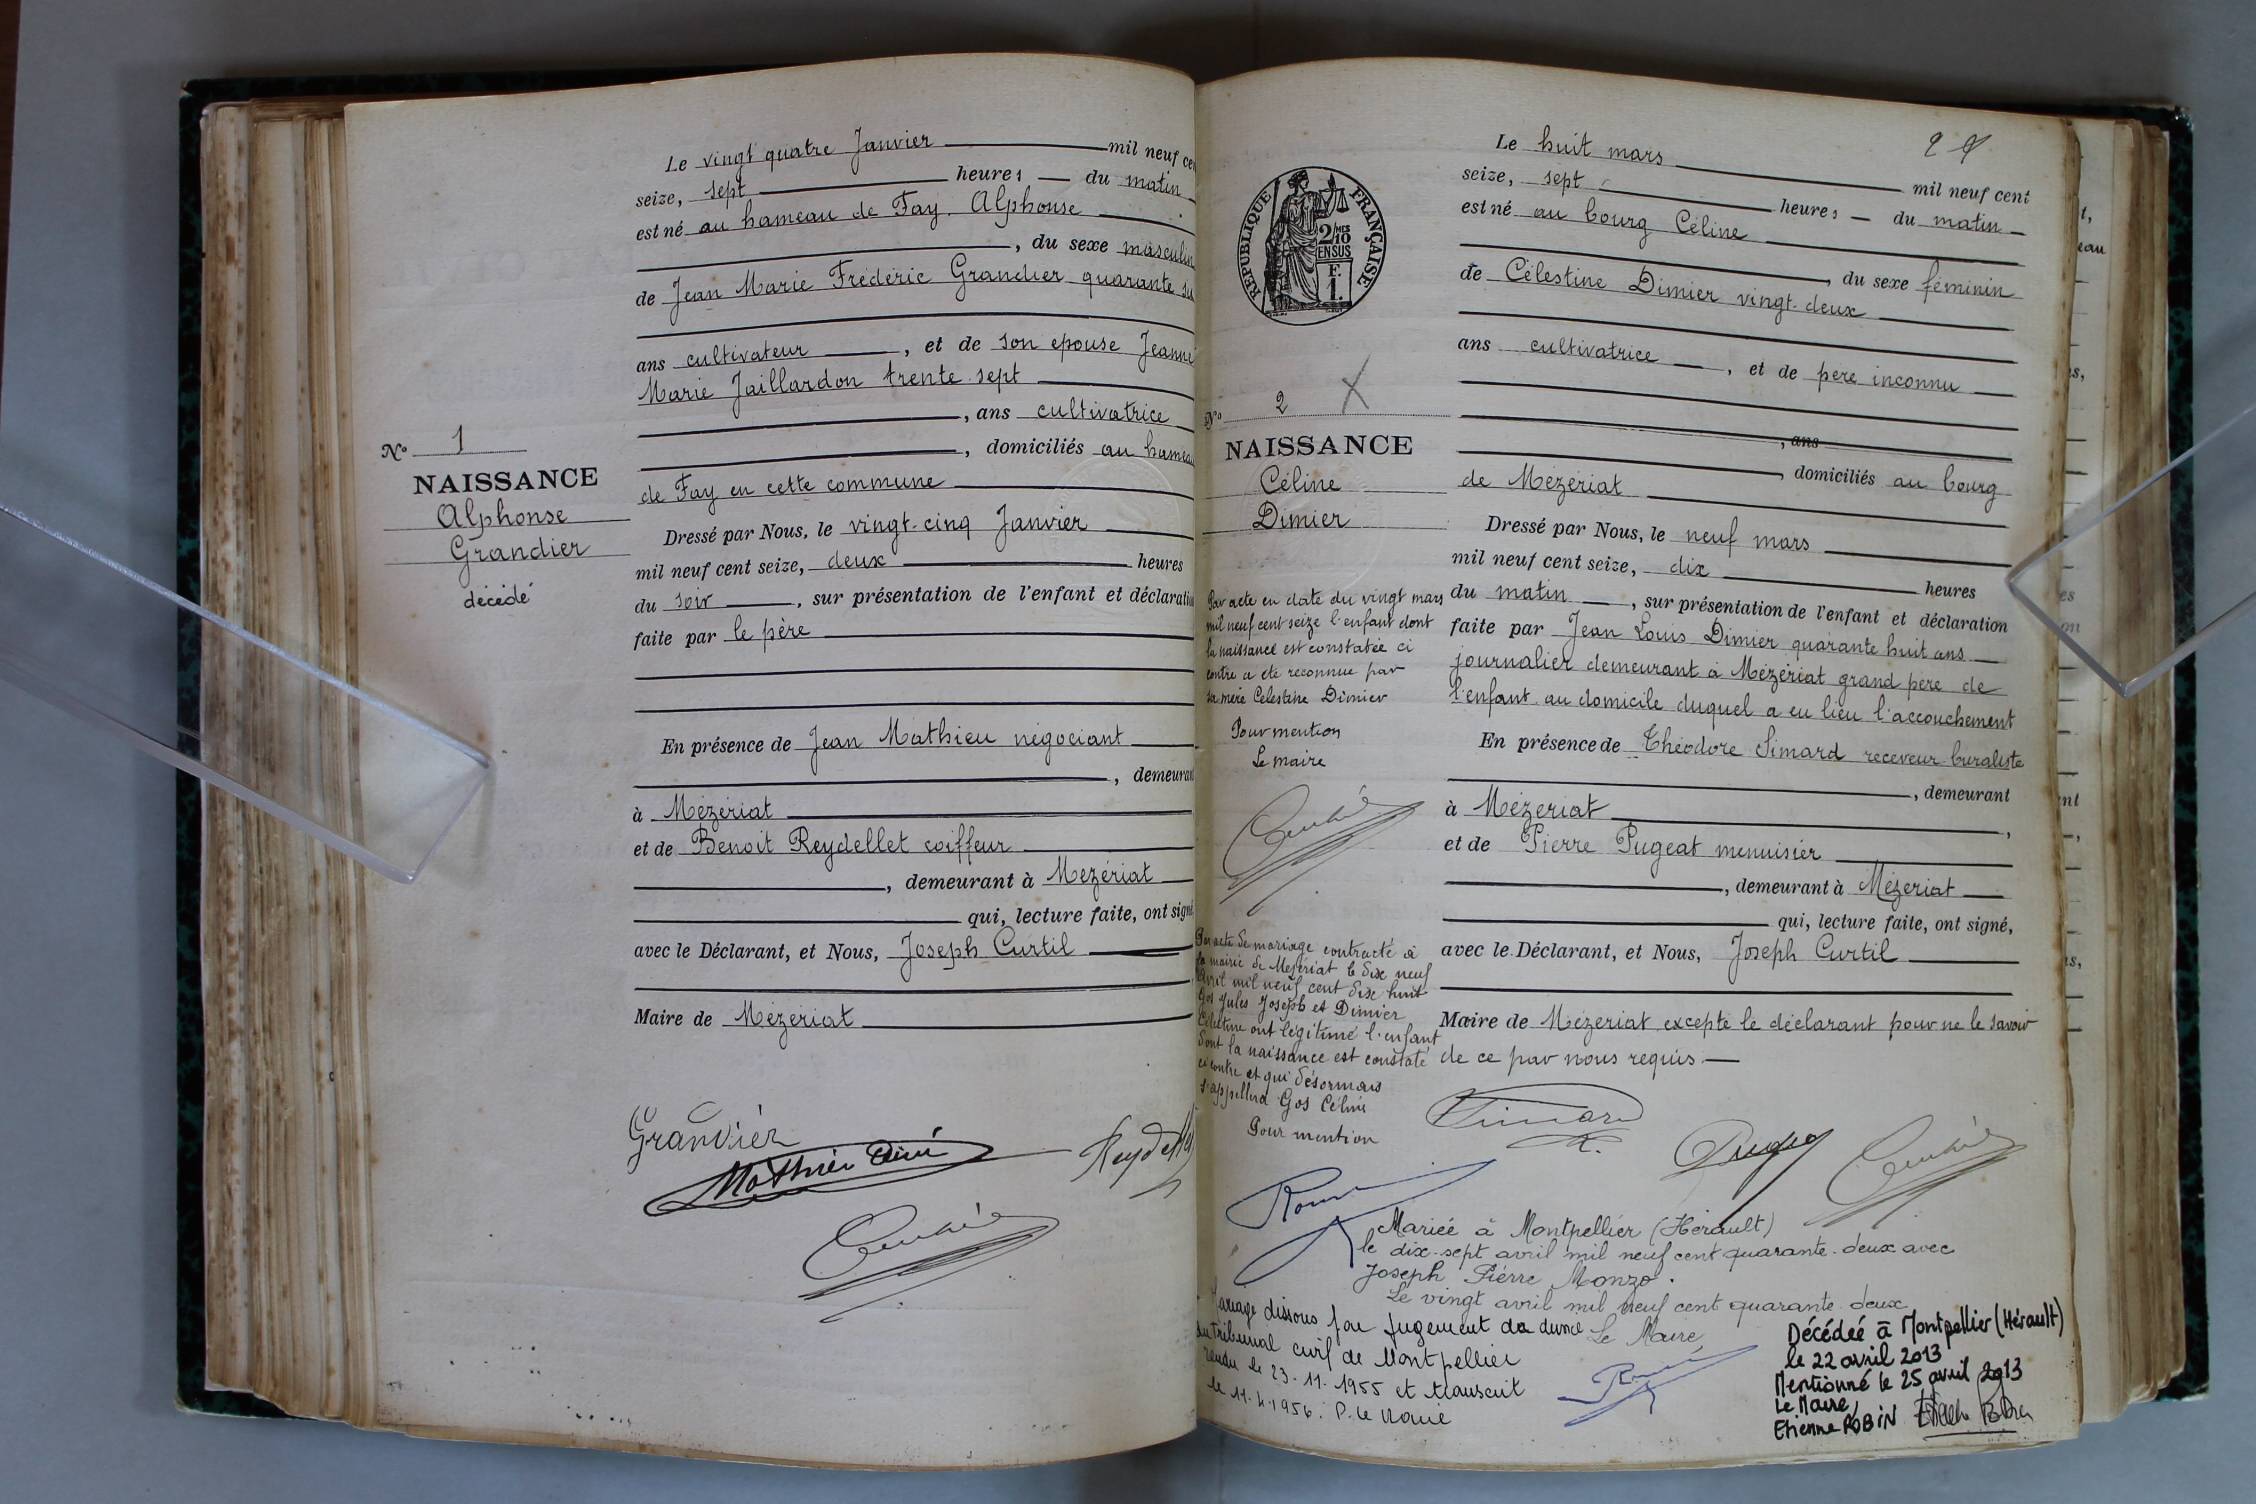 Le vingt quatre Janvier mil neuf cen
seize, sept heures du matin
est né au hameau de Fay. Alphonse
, du sexe masculin
de Jean Marie Frédéric Grandier quarante
ans cultivateur , et de son épouse Jeanne
Marie Jaillardon trente-sept
, ans cultivatrice
, domiciliés au hameau
de Fay en cette commune
Nº 1
NAISSANCE
Alphonse
Grandier
décédé
Dressé par Nous, le vingt-cinq Janvier
mil neuf cent seize, deux heures
du soir , sur présentation de l'enfant et déclaration
faite par le père
En présence de Jean Mathieu négociant
, demeurant
à Mézériat
et de Benoit Reydellet coiffeur
, demeurant à Mézériat
qui, lecture faite, ont signé
avec le Déclarant, et Nous, Joseph Curtil
Maire de Mézériat
Grandier
Mathieu
Reydellet
2
Le huit mars mil neuf cent
seize, sept heures du matin
est né au bourg Céline
, du sexe féminin
de Célestine Dimier vingt-deux
ans cultivatrice , et de père inconnu
, ans
, domiciliés au bourg
de Mézériat
RÉPUBLIQUE FRANÇAISE
2/10MES
EN SUS
F.
1.
Nº 2 X
NAISSANCE
Céline
Dimier
Dressé par Nous, le neuf mars
mil neuf cent seize, dix heures
du matin , sur présentation de l'enfant et déclaration
faite par Jean Louis Dimier quarante huit ans
journalier demeurant à Mézériat grand père de
l'enfant au domicile duquel a eu lieu l'accouchement
En présence de Théodore Simard receveur-buraliste
, demeurant
à Mézériat ,
et de Pierre Pugeat menuisier
, demeurant à Mézériat
qui, lecture faite, ont signé,
avec le Déclarant, et Nous, Joseph Curtil
Maire de Mézériat excepté le déclarant pour ne le savoir
de ce par nous requis
Simard
Par acte en date du vingt mars
mil neuf cent seize l'enfant dont
la naissance est constatée ci
contre a été reconnue par
sa mère Célestine Dimier
Pour mention
Le maire
Par acte de mariage contracté à
la mairie de Mézériat le dix neuf
Avril mil neuf cent dix huit
Gos Jules Joseph et Dimier
Célestine ont légitimé l'enfant
dont la naissance est constaté
ci contre et qui désormais
s'appellera Gos Céline
Pour mention
Mariée à Montpellier (Hérault)
le dix-sept avril mil neuf cent quarante-deux avec
Joseph Pierre Monzo.
Le vingt avril mil neuf cent quarante-deux
Le Maire,
Mariage dissous par jugement de divorce
du tribunal civil de Montpellier
rendu le 23-11-1955 et transcrit
le 11-4-1956. P. le Maire
Décédée à Montpellier (Hérault)
le 22 avril 2013
Mentionné le 25 avril 2013
Le Maire,
Etienne ROBIN